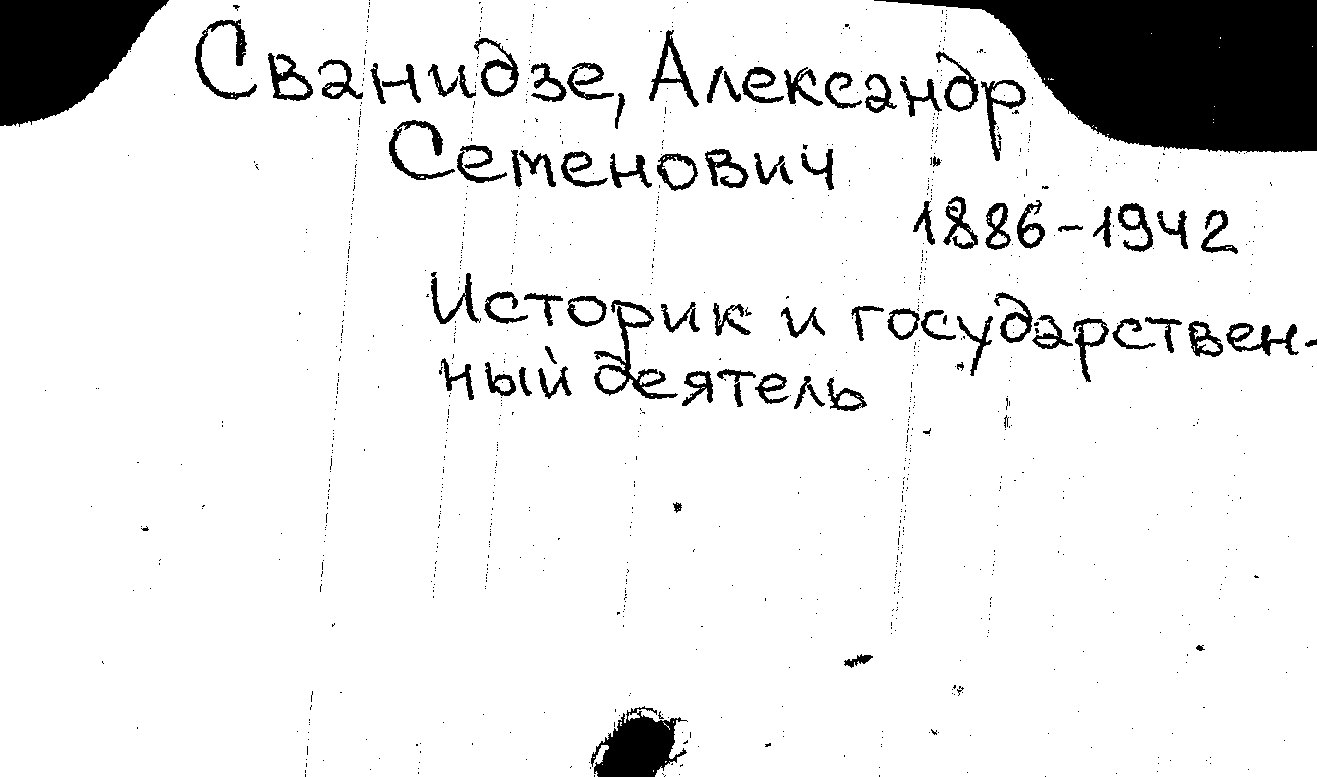 Сванидзе, Александр
Семенович
1886-1942
Историк и государствен-
ный деятель